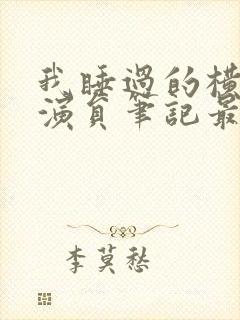 我睡過的橫
演員筆記最
李莫愁